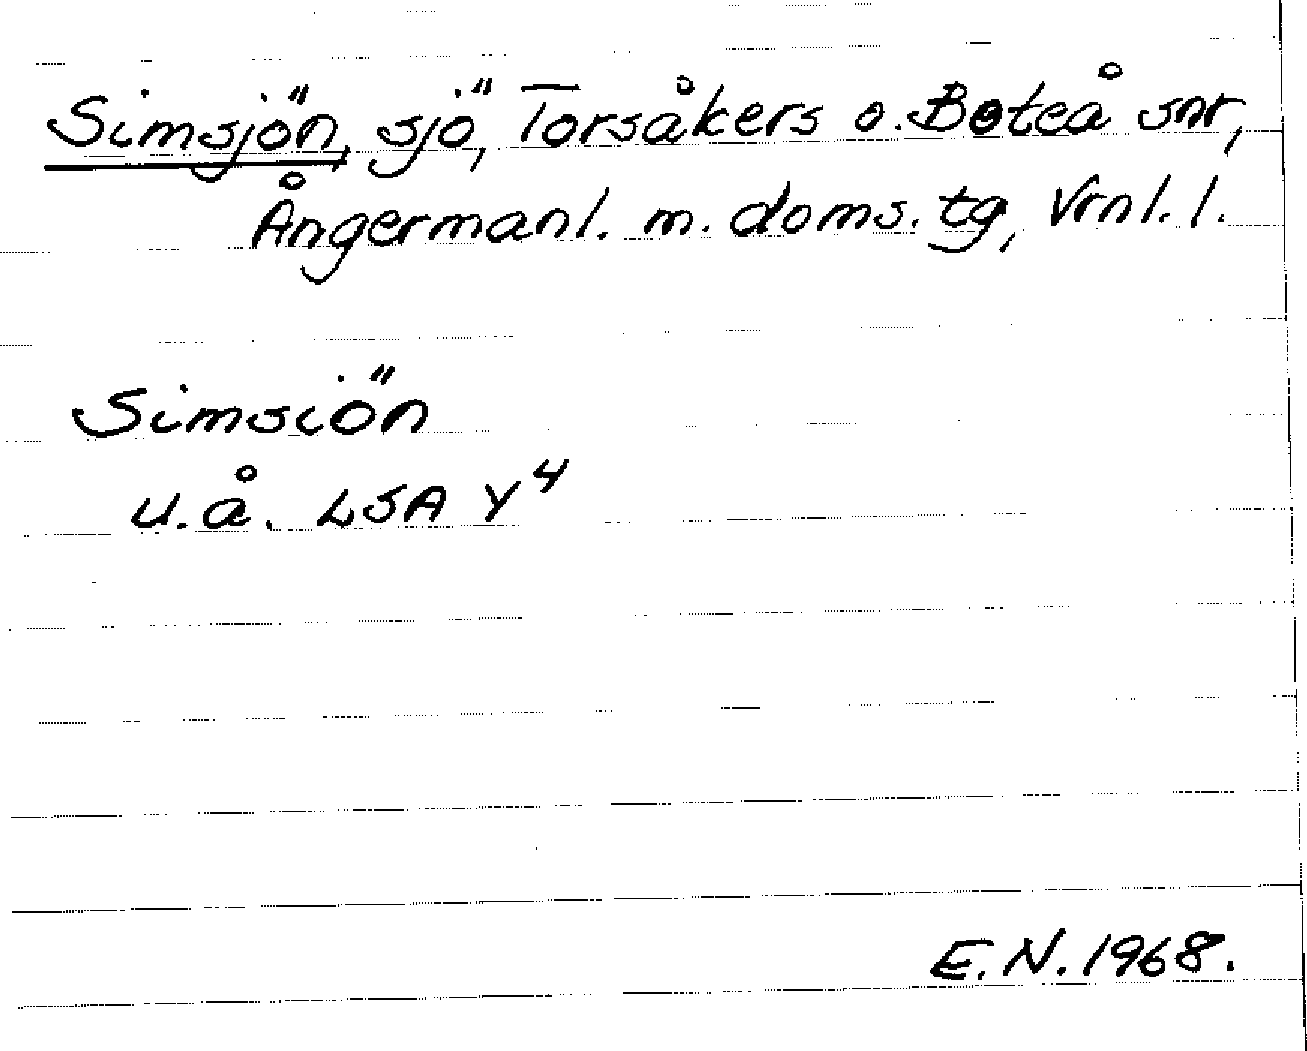 Simsjön, sjö, Torsåkers o. Boteå snr,
Ångermanl. m. doms. tg, Vrnl. l.
Simsiön
u. å. LSA Y⁴
E. N. 1968.